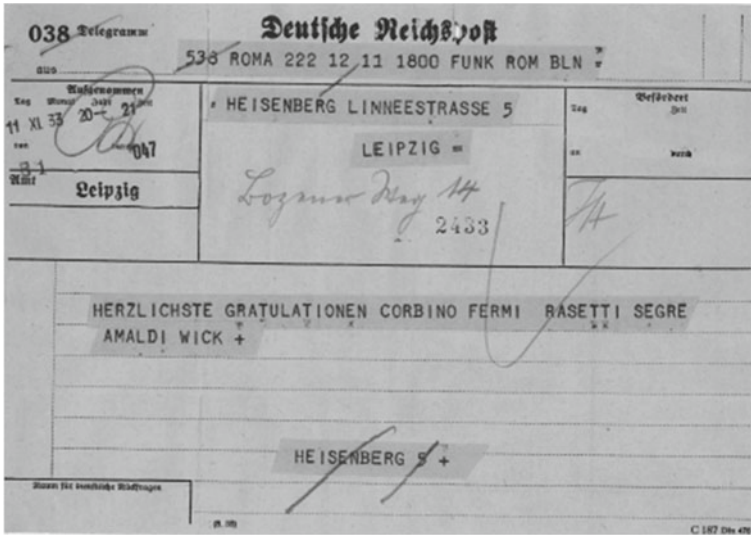 038 Telegramm
Deutsche Reichspost
aus
538 ROMA 222 12 11 1800 FUNK ROM BLN =
Aufgenommen
Tag Monat Jahr Zeit
11 XI 33 20 21
047
Amt Leipzig
= HEISENBERG LINNEESTRASSE 5
LEIPZIG =
Bozener Weg 14
2433
Befördert
Tag Zeit
an durch
HERZLICHSTE GRATULATIONEN CORBINO FERMI RASETTI SEGRE
AMALDI WICK +
HEISENBERG 5 +
Raum für dienstliche Rückfragen
C 187 Din 476